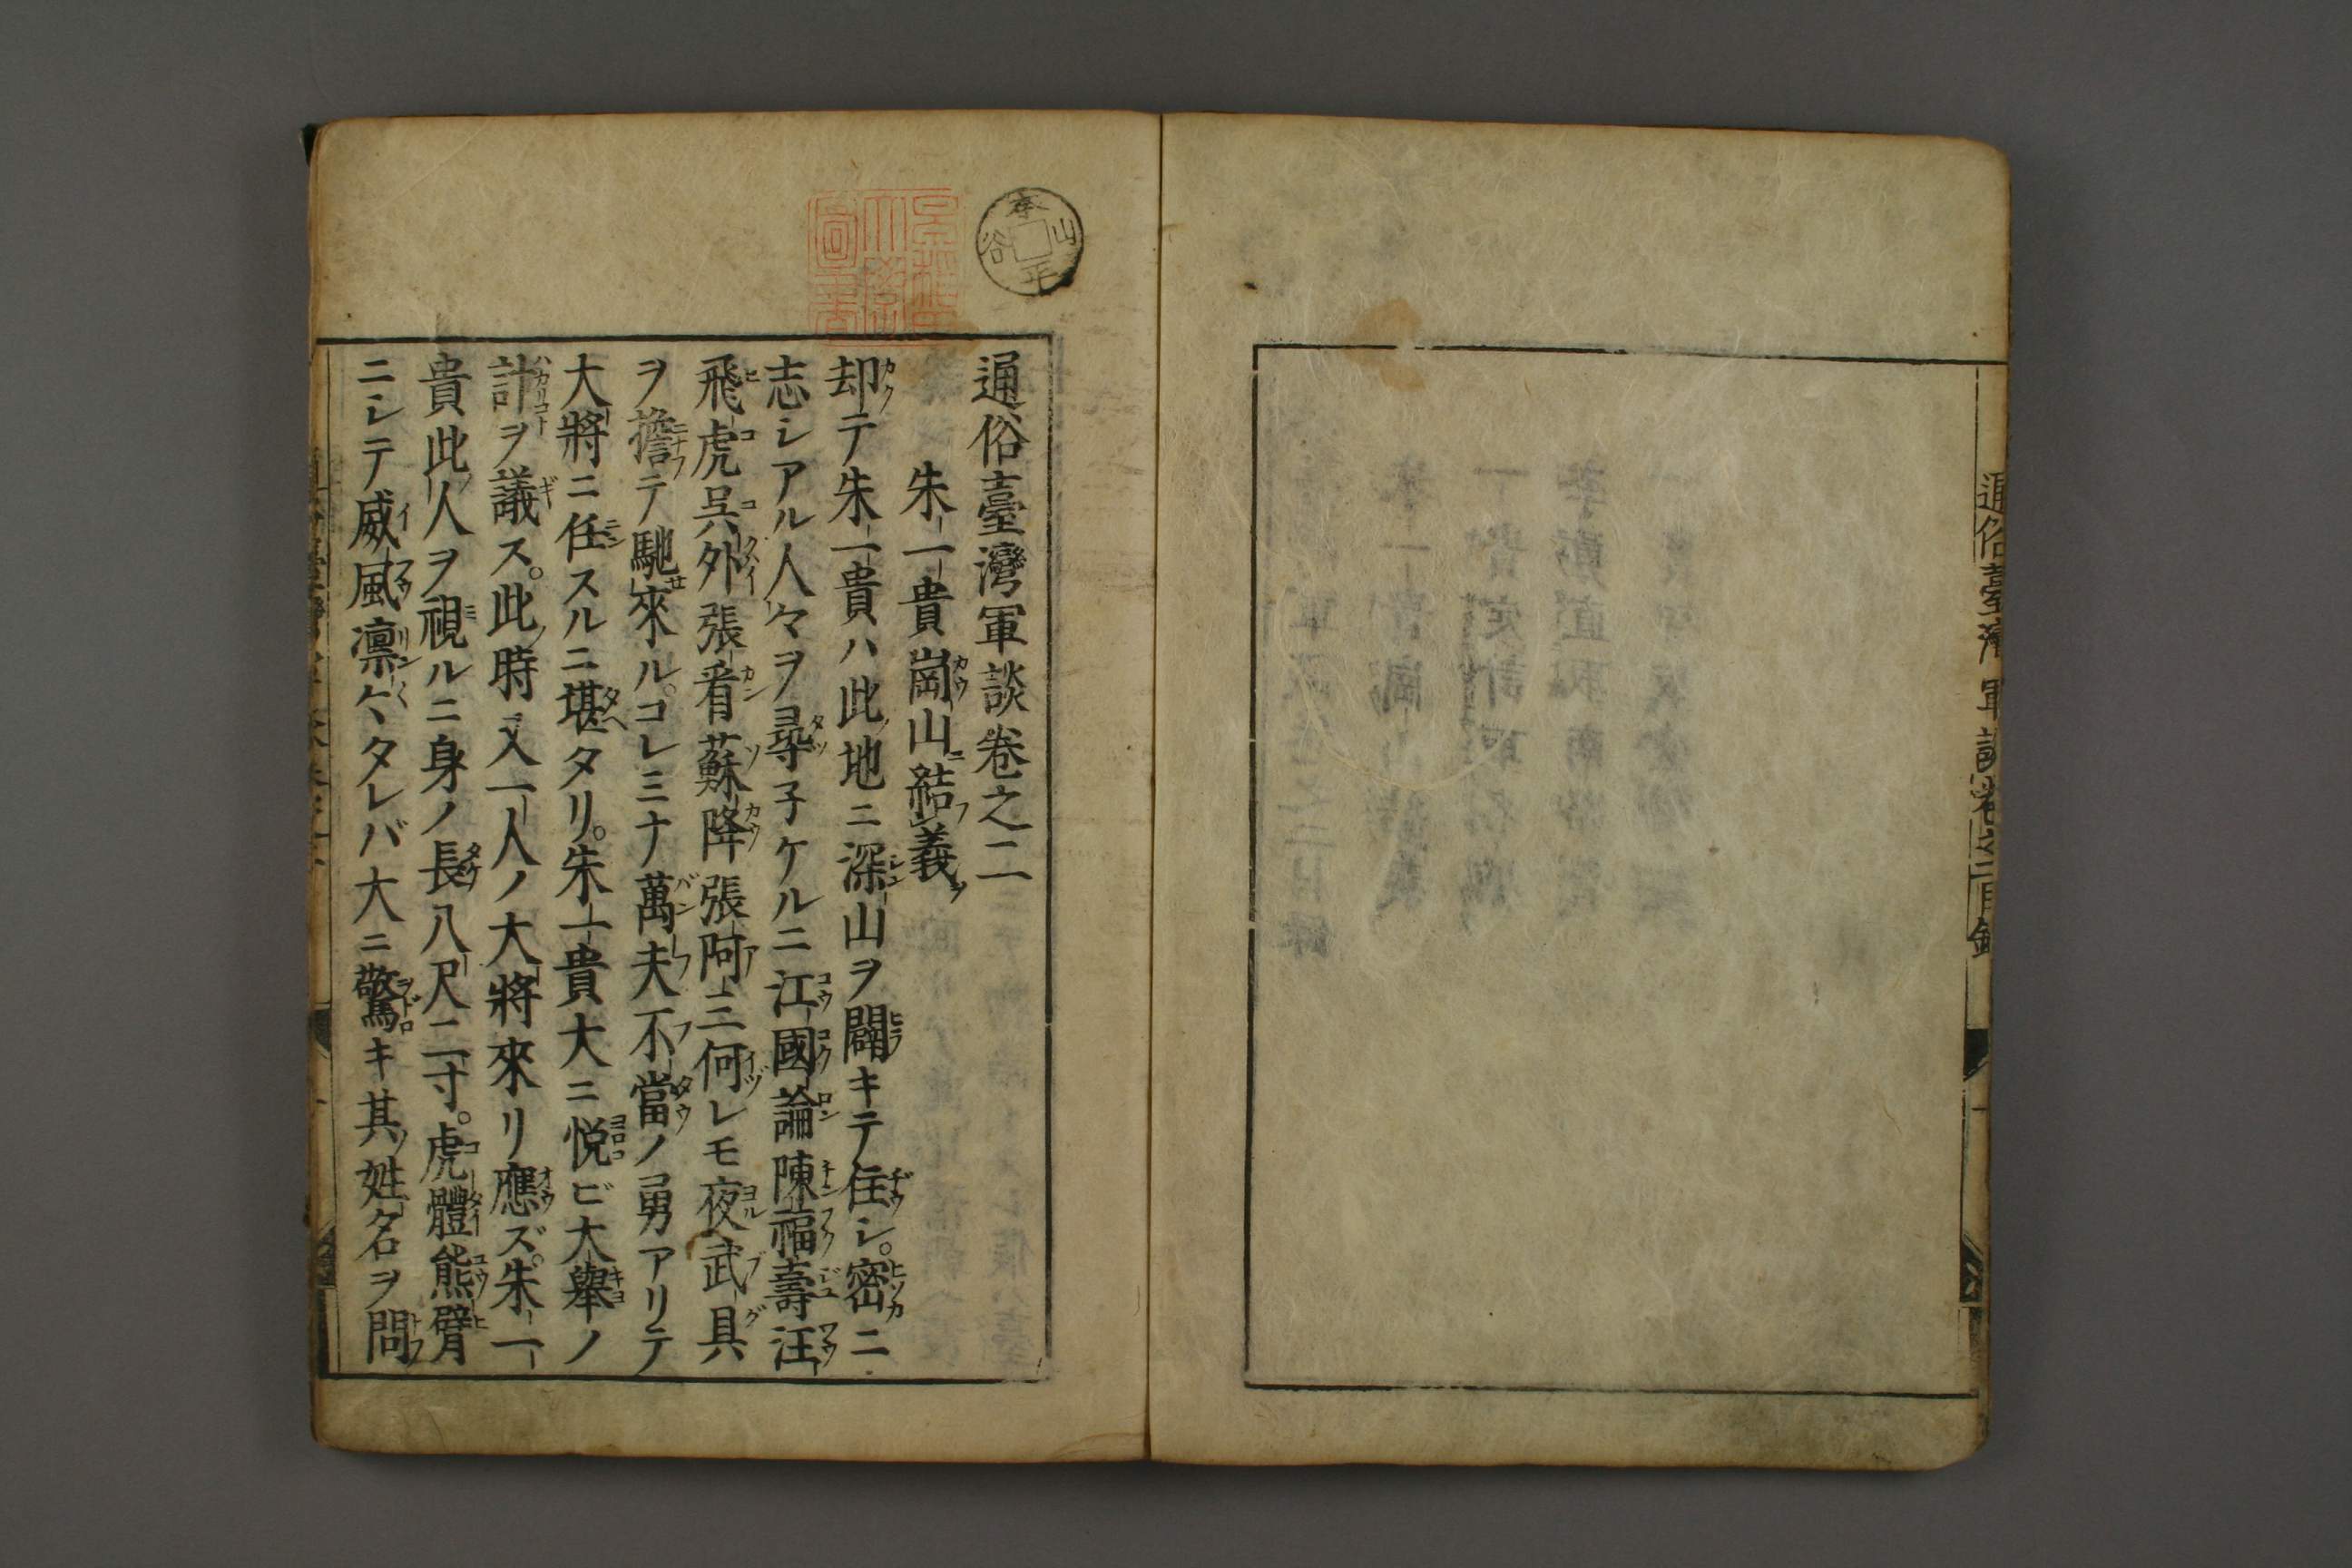 通俗臺灣軍談卷之二目錄
通俗臺灣軍談卷之二
朱一貴崗山ニ結フ義ヲ
却テ朱一貴ハ此ノ地ニ深山ヲ闢キテ住シ。密ニ
志シアル人々ヲ尋子ケルニ江國論陳福壽汪
飛虎吳外張看蘇降張阿三何レモ夜武具
ヲ擔テ馳來ル。コレミナ萬夫不當ノ勇アリテ
大將ニ任スルニ堪タリ。朱一貴大ニ悅ビ大舉ノ
計ヲ議ス。此ノ時又一人ノ大將來リ應ズ。朱一
貴此ノ人ヲ視ルニ身ノ長八尺二寸。虎體熊臂
ニシテ威風凛々タレバ大ニ驚キ其ノ姓名ヲ問